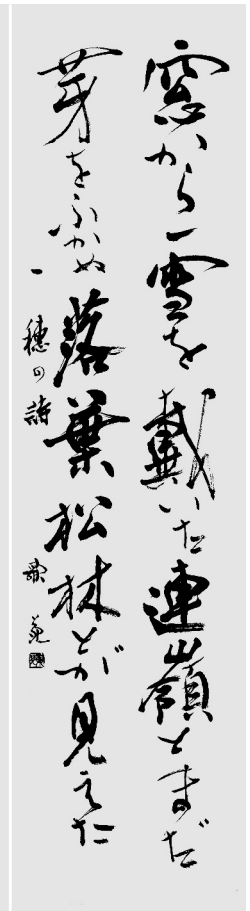 窓から雪を戴いた連嶺とまだ
芽をふかぬ落葉松林とが見えた
一穂の詩